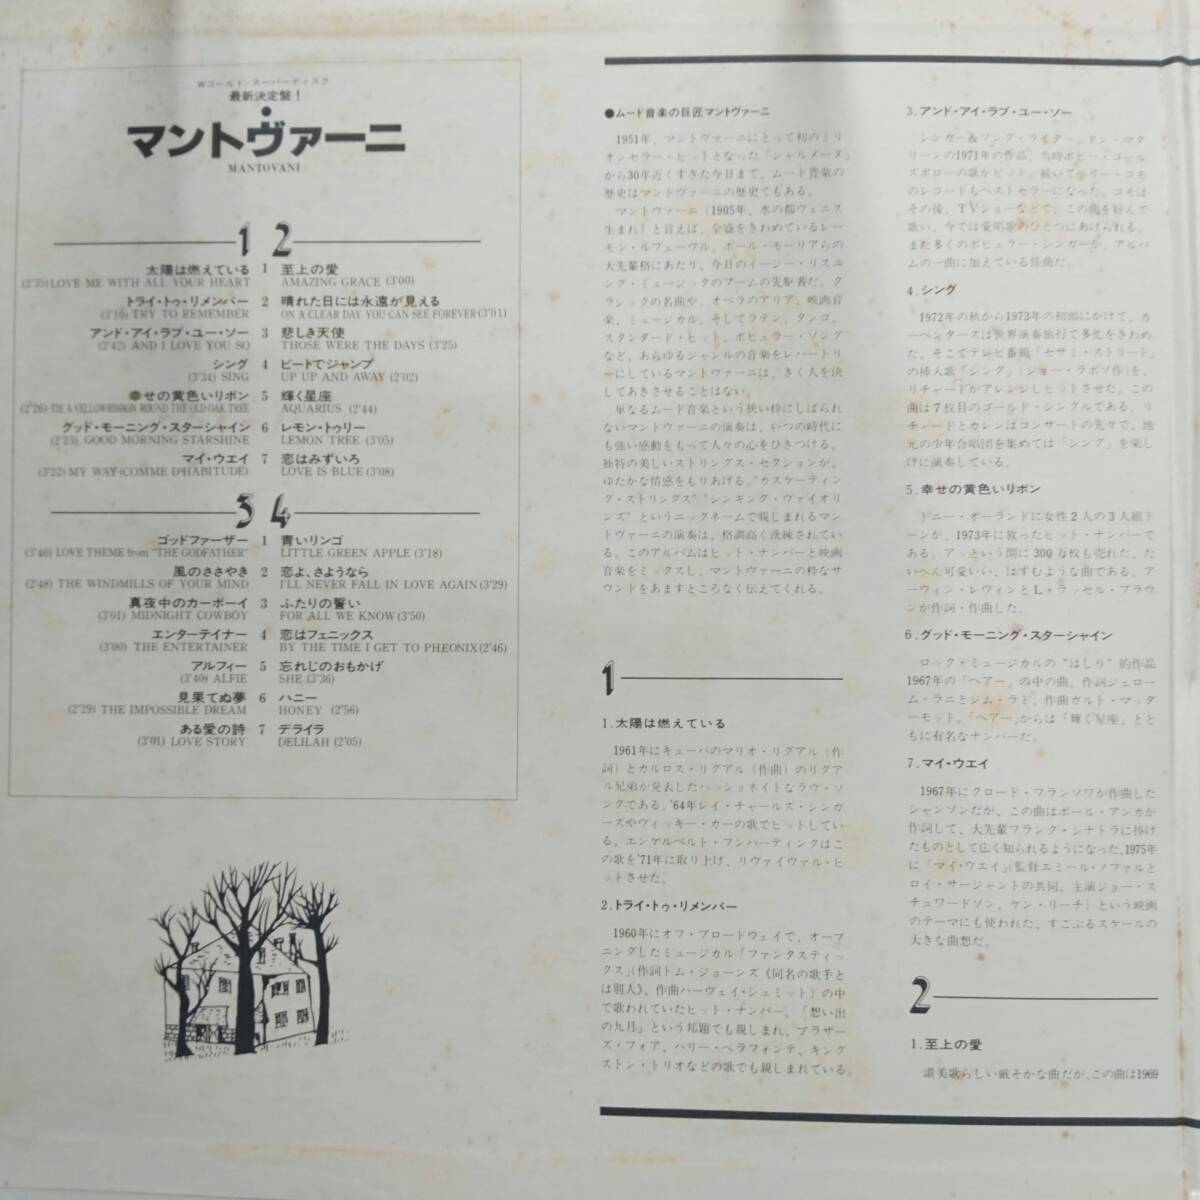 Wゴールド・スーパーディスク
最新決定盤!
マントヴァーニ
MANTOVANI
1
太陽は燃えている 1
(2'35)LOVE ME WITH ALL YOUR HEART
トライ・トゥ・リメンバー 2
(3'16) TRY TO REMEMBER
アンド・アイ・ラブ・ユー・ソー 3
(2'42) AND I LOVE YOU SO
シング 4
(3'34) SING
幸せの黄色いリボン 5
(2'26)TIE A YELLOWRIBBON ROUND THE OLD OAK TREE
グッド・モーニング・スターシャイン 6
(2'23) GOOD MORNING STARSHINE
マイ・ウエイ 7
(3'22) MY WAY (COMME D'HABITUDE)
2
至上の愛
AMAZING GRACE (3'00)
晴れた日には永遠が見える
ON A CLEAR DAY YOU CAN SEE FOREVER(3'01)
悲しき天使
THOSE WERE THE DAYS (3'25)
ビートでジャンプ
UP UP AND AWAY (2'02)
輝く星座
AQUARIUS (2'44)
レモン・トゥリー
LEMON TREE (3'05)
恋はみずいろ
LOVE IS BLUE (3'08)
3
ゴッドファーザー 1
(3'40) LOVE THEME from "THE GODFATHER"
風のささやき 2
(2'48) THE WINDMILLS OF YOUR MIND
真夜中のカーボーイ 3
(3'01) MIDNIGHT COWBOY
エンターテイナー 4
(3'00) THE ENTERTAINER
アルフィー 5
(3'40) ALFIE
見果てぬ夢 6
(2'29) THE IMPOSSIBLE DREAM
ある愛の詩 7
(3'01) LOVE STORY
4
青いリンゴ
LITTLE GREEN APPLE (3'18)
恋よ、さようなら
I'LL NEVER FALL IN LOVE AGAIN(3'29)
ふたりの誓い
FOR ALL WE KNOW (3'50)
恋はフェニックス
BY THE TIME I GET TO PHEONIX(2'46)
忘れじのおもかげ
SHE (3'36)
ハニー
HONEY (2'56)
デライラ
DELILAH (2'05)
●ムード音楽の巨匠マントヴァーニ
1951年、マントヴァーニにとって初のミリ
オンセラー・ヒットとなった「シャルメーヌ」
から30年近くすぎた今日まで、ムード音楽の
歴史はマントヴァーニの歴史でもある。
マントヴァーニ(1905年、水の都ヴェニス
生まれ)と言えば、全盛をきわめているレー
モン・ルフェーヴル、ポール・モーリアらの
大先輩格にあたり、今日のイージー・リスニ
ング・ミュージックのブームの先駆者だ。ク
ラシックの名曲や、オペラのアリア、映画音
楽、ミュージカル、そしてラテン、タンゴ、
スタンダード・ヒット、ポピュラー・ソング
など、あらゆるジャンルの音楽をレパートリ
ーにしているマントヴァーニは、きく人を決
してあきさせることはない。
単なるムード音楽という狭い枠にしばられ
ないマントヴァーニの演奏は、いつの時代に
も強い感動をもって人々の心をひきつける。
独特の美しいストリングス・セクションが、
ゆたかな情感をもりあげる。"カスケーティン
グ・ストリングス""シンギング・ヴァイオリ
ンズ"というニックネームで親しまれるマン
トヴァーニの演奏は、格調高く洗練されてい
る。このアルバムはヒット・ナンバーと映画
音楽をミックスし、マントヴァーニの粋なサ
ウンドをあますところなく伝えてくれる。
1
1.太陽は燃えている
1961年にキューバのマリオ・リグアル(作
詞)とカルロス・リグアル(作曲)のリグア
ル兄弟が発表したパッショネイトなラヴ・ソ
ングである。'64年レイ・チャールズ・シンガ
ーズやヴィッキー・カーの歌でヒットしてい
る。エンゲルベルト・フンパーディンクはこ
の歌を'71年に取り上げ、リヴァイヴァル・ヒ
ットさせた。
2.トライ・トゥ・リメンバー
1960年にオフ・ブロードウェイで、オープ
ニングしたミュージカル「ファンタスティッ
クス」(作詞トム・ジョーンズ《同名の歌手と
は別人》、作曲ハーヴェイ・シュミット)の中
で歌われていたヒット・ナンバー。「想い出
の九月」という邦題でも親しまれ、ブラザー
ズ・フォア、ハリー・ベラフォンテ、キング
ストン・トリオなどの歌でも親しまれている。
3.アンド・アイ・ラブ・ユー・ソー
シンガー&ソング・ライター、ドン・マク
リーンの1971年の作品。当時ボビー・ゴール
スボローの歌がヒット、続いてペリー・コモ
のレコードもベストセラーになった。コモは
その後、TVショーなどで、この曲を好んで
歌い、今では愛唱歌のひとつにあげられる。
また多くのポピュラー・シンガーが、アルバ
ムの一曲に加えている佳曲だ。
4.シング
1972年の秋から1973年の初頭にかけて、カ
ーペンターズは世界演奏旅行で多忙をきわめ
た。そこでテレビ番組「セサミ・ストリート」
の挿入歌「シング」(ジョー・ラポソ作)を、
リチャードがアレンジしヒットさせた。この
曲は7枚目のゴールド・シングルである。リ
チャードとカレンはコンサートの先々で、地
元の少年合唱団を集めては「シング」を楽し
げに演奏している。
5.幸せの黄色いリボン
トニー・オーランドに女性2人の3人組ド
ーンが、1973年に放ったヒット・ナンバーで
ある。アッという間に300万枚も売れた、た
いへん可愛いい、はずむような曲である。ア
ーウィン・レヴィンとL・ラッセル・ブラウ
ンが作詞・作曲した。
6.グッド・モーニング・スターシャイン
ロック・ミュージカルの"はしり"的作品
1967年の「ヘアー」の中の曲。作詞ジェロー
ム・ラニとジム・ラド、作曲ガルト・マッダ
ーモット。「ヘアー」からは「輝く星座」とと
もに有名なナンバーだ。
7.マイ・ウエイ
1967年にクロード・フランソワが作曲した
シャンソンだが、この曲はポール・アンカが
作詞して、大先輩フランク・シナトラに捧げ
たものとして広く知られるようになった。1975年
に「マイ・ウエイ」(監督エミール・ノファルと
ロイ・サージャントの共同、主演ジョー・ス
チュワードソン、ケン・リーチ)という映画
のテーマにも使われた、すこぶるスケールの
大きな曲想だ。
2
1.至上の愛
讃美歌らしい厳そかな曲だが、この曲は1969